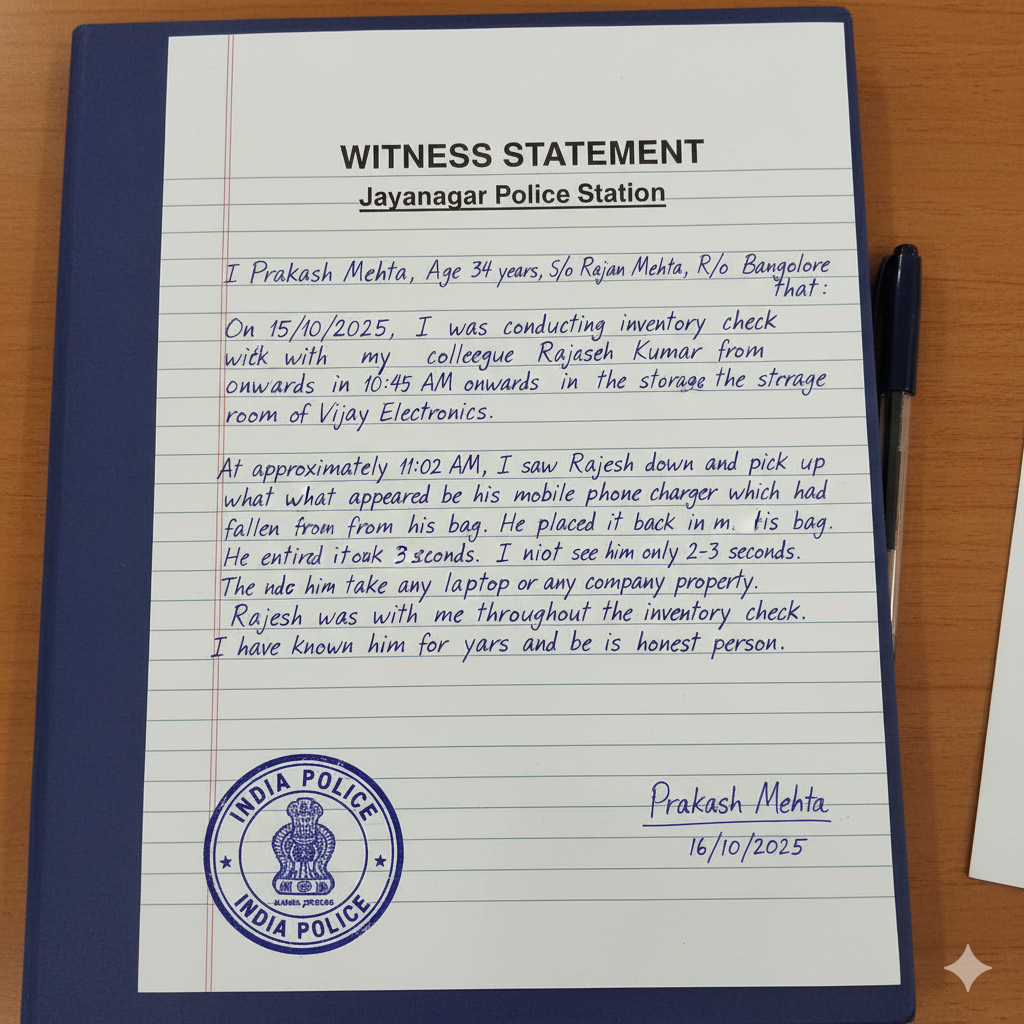 WITNESS STATEMENT
Jayanagar Police Station
I Prakash Mehta, Age 34 years, S/o Rajan Mehta, R/o Bangolore
that:
On 15/10/2025, I was conducting inventory check
with my colleegue Rajaseh Kumar from
onwards in 10:45 AM onwards in the storage the sterage
room of Vijay Electronics.
At approximately 11:02 AM, I saw Rajesh down and pick up
what what appeared be his mobile phone charger which had
fallen from from his bag. He placed it back in m. his bag.
He entired itouk 3 sconds. I niot see him only 2-3 seconds.
The nde him take any laptop or any company property.
Rajesh was with me throughout the inventory check.
I have known him for yars and be is honest person.
INDIA POLICE
INDIA POLICE
Prakash Mehta
16/10/2025